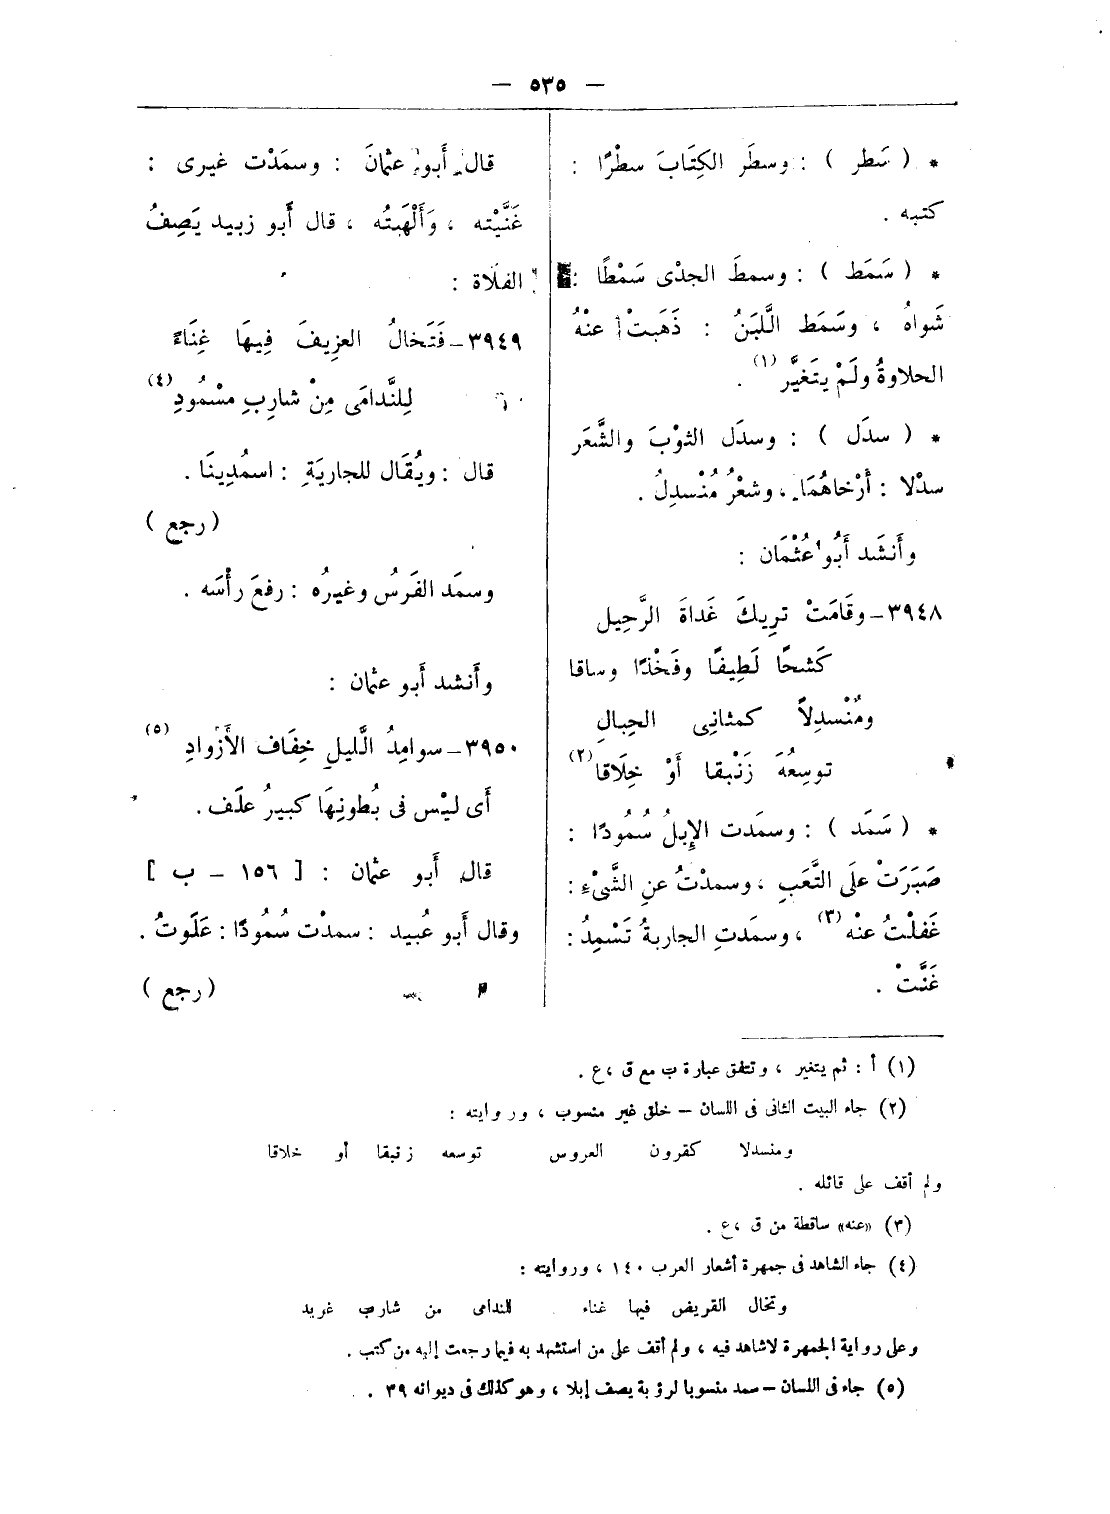 — ٥٣٥ —
* ( سَطر ) : وسطَر الكِتَابَ سطرًا :
كتبه .
* ( سَمَط ) : وسمطَ الجدْى سَمْطًا :
شَواهُ ، وسَمَط اللَّبَنُ : ذَهَبتْ عنْهُ
الحلاوةُ ولَمْ يتَغيَّر (١) .
* ( سدَل ) : وسدَل الثوْبَ والشَّعَر
سدْلا : أَرْخاهُمَا ، وشعْرُ مُنْسدِلُ .
وأَنشَد أَبُو عُثْمَان :
٣٩٤٨ ــ وقَامَتْ تريكَ غَداةَ الرَّحِيل
كَشحًا لَطِيفًا وفَخْذًا وساقا
ومُنْسدِلاً كمثانِى الحِبالِ
توسِعُهَ زَنْبقا أَوْ خِلَاقا (٢)
* ( سَمَد ) : وسمَدت الإِبلُ سُمُودًا :
صَبَرَتْ علَى التَّعَبِ ، وسمدْتُ عنِ الشَّىْءِ :
غَفلْتُ عنْه (٣) ، وسمَدتِ الجاريةُ تَسْمِدُ :
غَنَّتْ .
قال أَبو عثمانَ : وسمَدْت غيرى :
غَنَّيْته ، وَأَلْهَيتُه ، قال أَبو زبيد يَصِفُ
الفلَاة :
٣٩٤٩ ــ فَتَخالُ العزِيفَ فِيهَا غِنَاءً
لِلنَّدامَى مِنْ شارِبِ مسْمُودِ (٤)
قال : ويُقَال للجاريَةِ : اسمُدِينَا .
( رجع )
وسمَد الفَرَسُ وغيرُه : رفعَ رأْسَه .
وأَنشد أَبو عثمان :
٣٩٥٠ ــ سوامِدُ الَّليلِ خِفَاف الأَزْوادِ (٥)
أَى ليْس فى بُطونِهَا كبيرُ علَف .
قال أَبو عثمان : [ ١٥٦ – ب ]
وقال أَبو عُبيد : سمدْت سُمُودًا : عَلَوتُ .
( رجع )
(١) أ : ثم يتغير ، وتتفق عبارة ب مع ق ، ع .
(٢) جاء البيت الثانى فى اللسان – خلق غير منسوب ، وروايته :
ومنسدلا كقرون العروس توسعه زنبقا أو خلاقا
ولم أقف على قائله .
(٣) «عنه» ساقطة من ق ، ع .
(٤) جاء الشاهد فى جمهرة أشعار العرب ١٤٠ ، وروايته :
وتخال القريض فيها غناء للندامى من شارب غريد
وعلى رواية الجمهرة لا شاهد فيه ، ولم أقف على من استشهد به فيما رجعت إليه من كتب .
(٥) جاء فى اللسان – سمد منسوبا لرؤبة يصف إبلا ، وهو كذلك فى ديوانه ٣٩ .